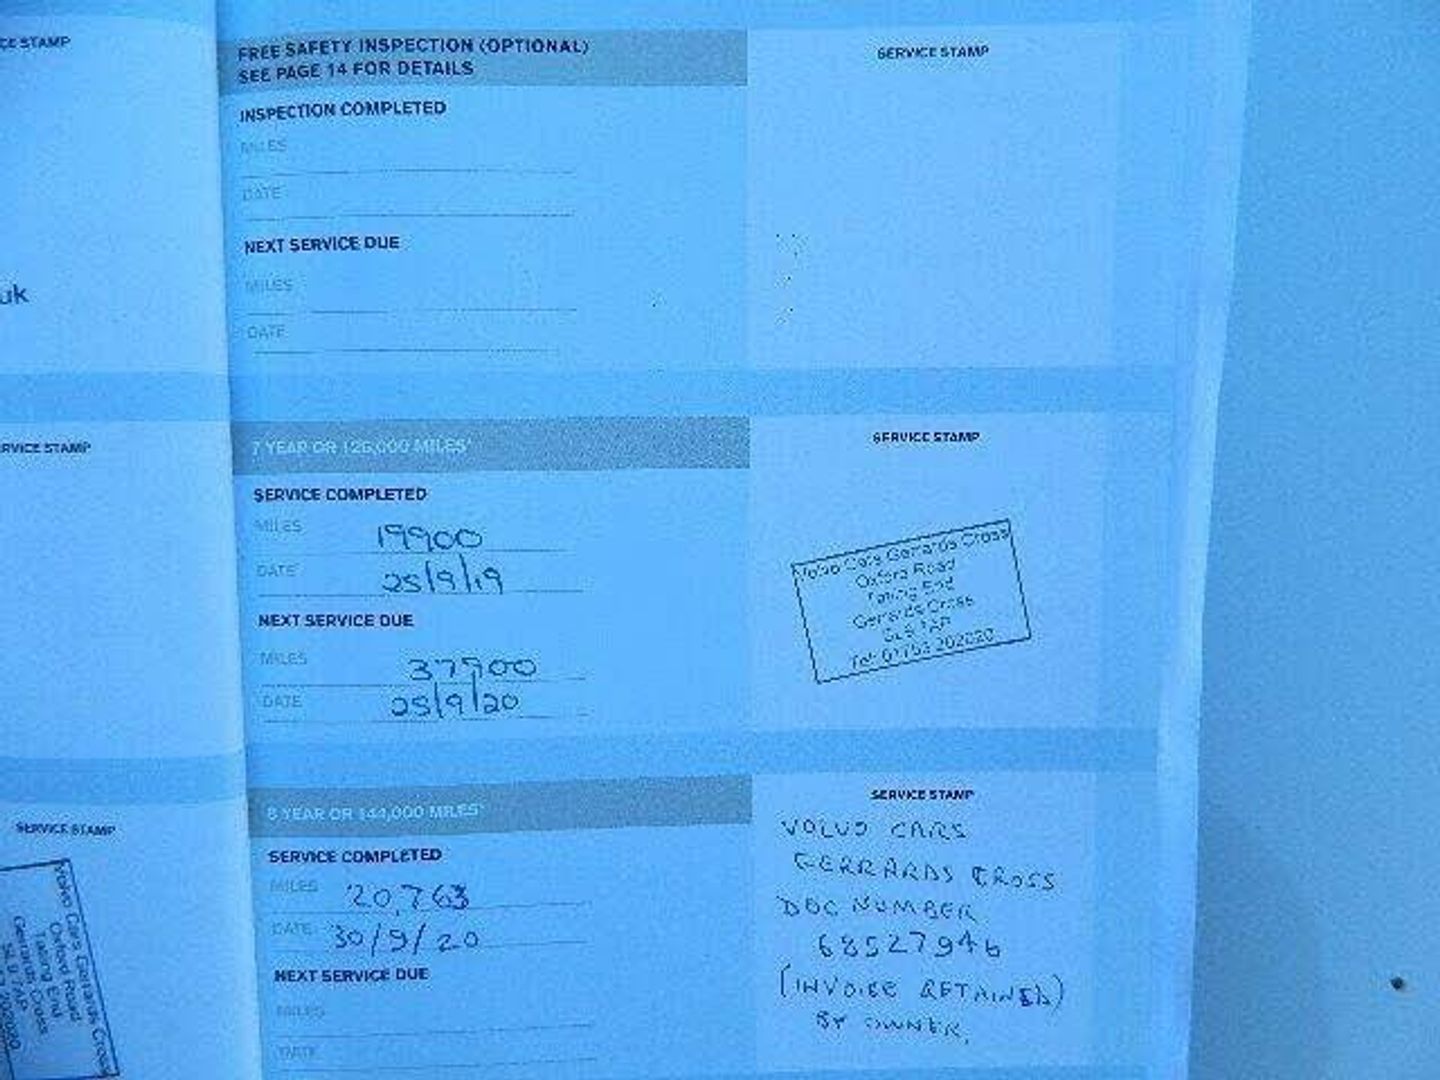 CE STAMP
FREE SAFETY INSPECTION (OPTIONAL)
SEE PAGE 14 FOR DETAILS
SERVICE STAMP
INSPECTION COMPLETED
MILES
DATE
NEXT SERVICE DUE
MILES
DATE
uk
RVICE STAMP
7 YEAR OR 126,000 MILES*
SERVICE STAMP
SERVICE COMPLETED
MILES 19900
DATE 25/9/19
NEXT SERVICE DUE
MILES 37900
DATE 25/9/20
Volvo Cars Gerrards Cross
Oxford Road
Tatling End
Gerrards Cross
SL9 7AP
Tel: 01753 202020
SERVICE STAMP
Volvo Cars Gerrards Cross
Oxford Road
Tatling End
Gerrards Cross
SL9 7AP
8 YEAR OR 144,000 MILES*
SERVICE STAMP
SERVICE COMPLETED
MILES 20,763
DATE 30/9/20
NEXT SERVICE DUE
MILES
DATE
VOLVO CARS
GERRARDS CROSS
DOC NUMBER
68527946
(INVOICE RETAINED)
BY OWNER.